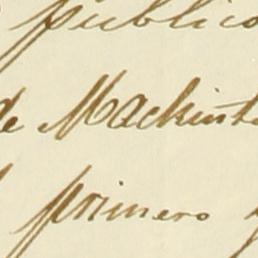 público
de Mackinto
primero